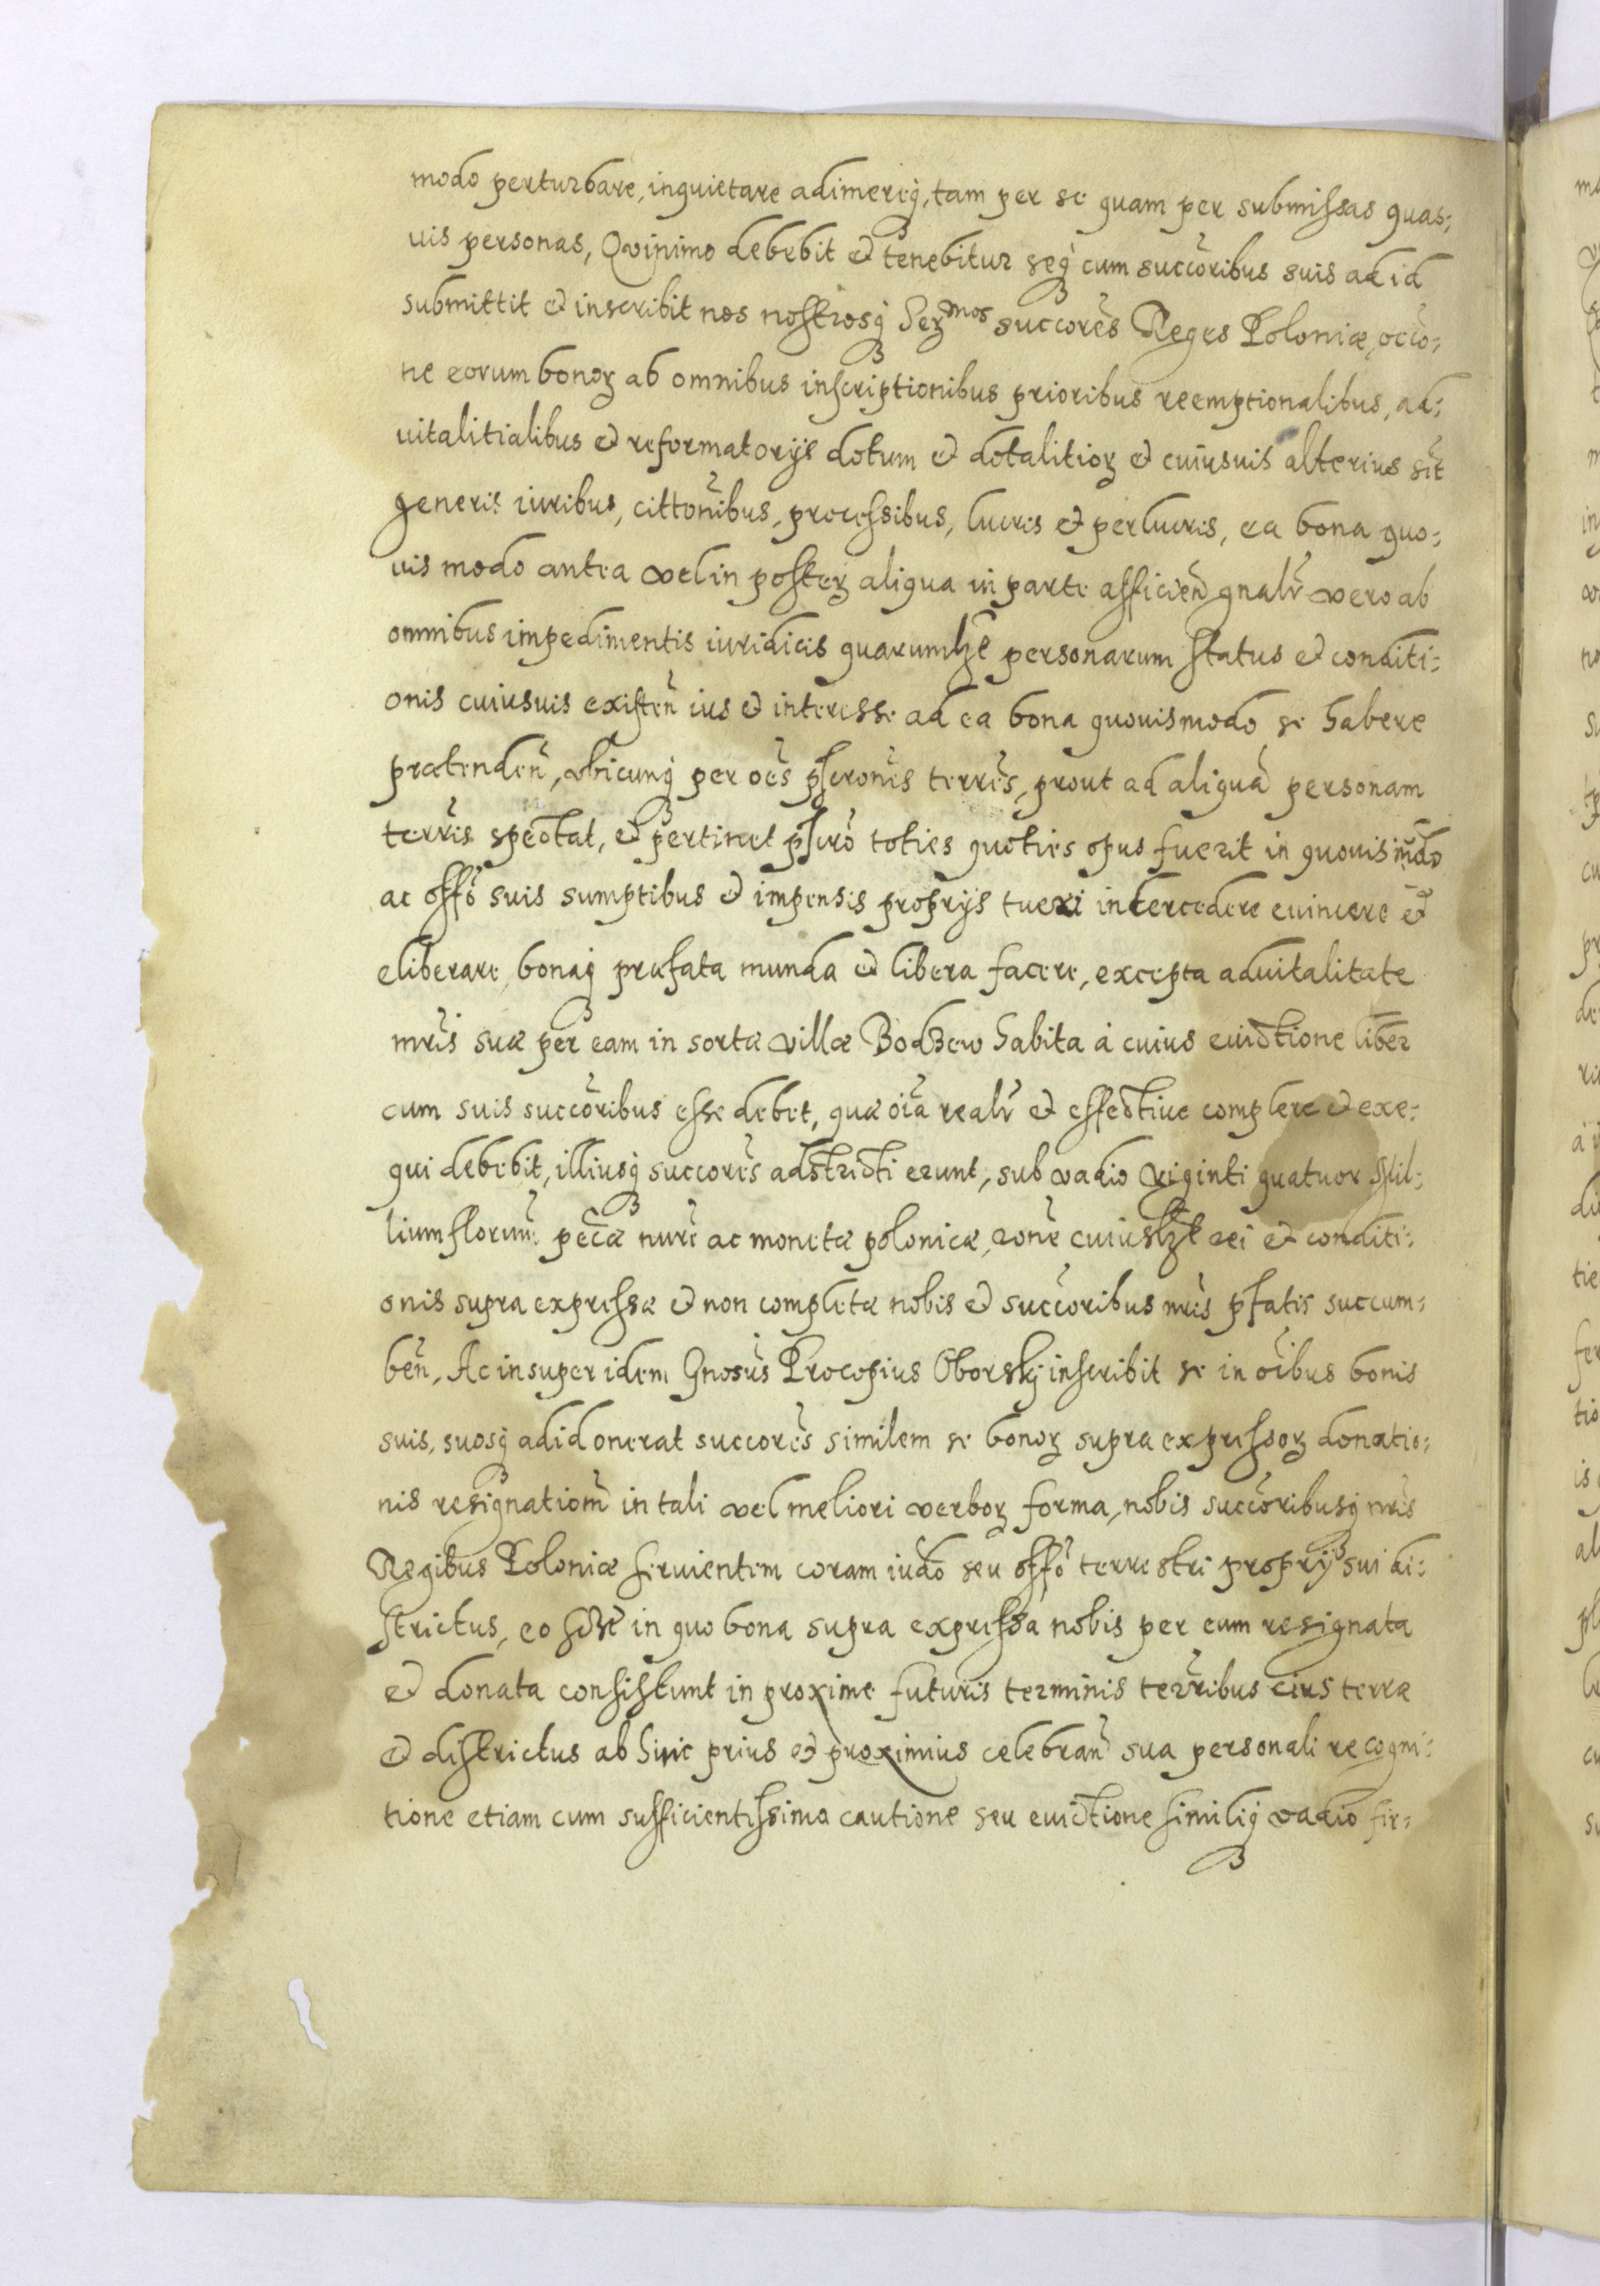 modo perturbare, inquietare adimereq₃, tam per se quam per submissas quas:
uis personas, Qvinimo debebit et tenebitur seq₃ cum succõribus suis ad id
submittit et inscribit nos nostrosq₃ Serꝫmos succorẽs Reges Poloniæ, occõ:
ne eorum bonoꝝ ab omnibus inscriptionibus prioribus reemptionalibus, ad:
uitalitialibus et reformatorijs dotum et dotalitioꝝ et cuiusuis alterius sit
generis iuribus, cittonĩbus, processibus, lucris et perlucris, ea bona quo:
uis modo antea vel in posteꝝ aliqua in parte afficien̄ gnalr̄ vero ab
omnibus impedimentis iuridicis quarumlꝫt personarum status et conditi:
onis cuiusuis existen̄ ius et interesse ad ea bona quouismodo se habere
prætenden̄, vbicunq₃ per oẽs pscronẽs terrẽs, prout ad aliquã personam
terrĩs spectat, et pertinet pscrõ toties quoties opus fuerit in quouis iudõ
ac offõ suis sumptibus et impensis proprijs tueri intercedere euincere et
eliberare, bonaq₃ præfata munda et libera facere, excepta aduitalitate
mrĩs suæ per eam in sorte villæ Bodzew habita á cuius euictione liber
cum suis succõribus esse debet, quæ oĩa realr̄ et effectiue complere et exe:
qui debebit, illiusq₃ succorẽs adstricti erunt, sub vadio viginti quatuor Mil:
lium florum̄ pecc̄æ nurẽ ac monetæ polonicæ, rõne cuiuslꝫt rei et conditi:
onis supra expressæ et non completæ nobis et succõribus nrĩs pfatis succum:
ben̄, Ac insuper idem Gnosũs Procopius Oborskj inscribit se in oĩbus bonis
suis, suosq₃ ad id onerat succorẽs similem se bonoꝝ supra expressoꝝ donatio:
nis resignationẽ in tali vel meliori verboꝝ forma, nobis succõribusq₃ nrĩs
Regibus Poloniæ seruientem coram iudõ seu offõ terrestri proprijs sui di:
strictus, eo in quo bona supra expressa nobis per eum resignata
et donata consistunt in proxime futuris terminis terrĩbus eius terræ
et districtus ab hinc prius et proximius celebran̄ sua personali recogni:
tione etiam cum sufficientissima cautione seu euictione similiq₃ vadio fir: